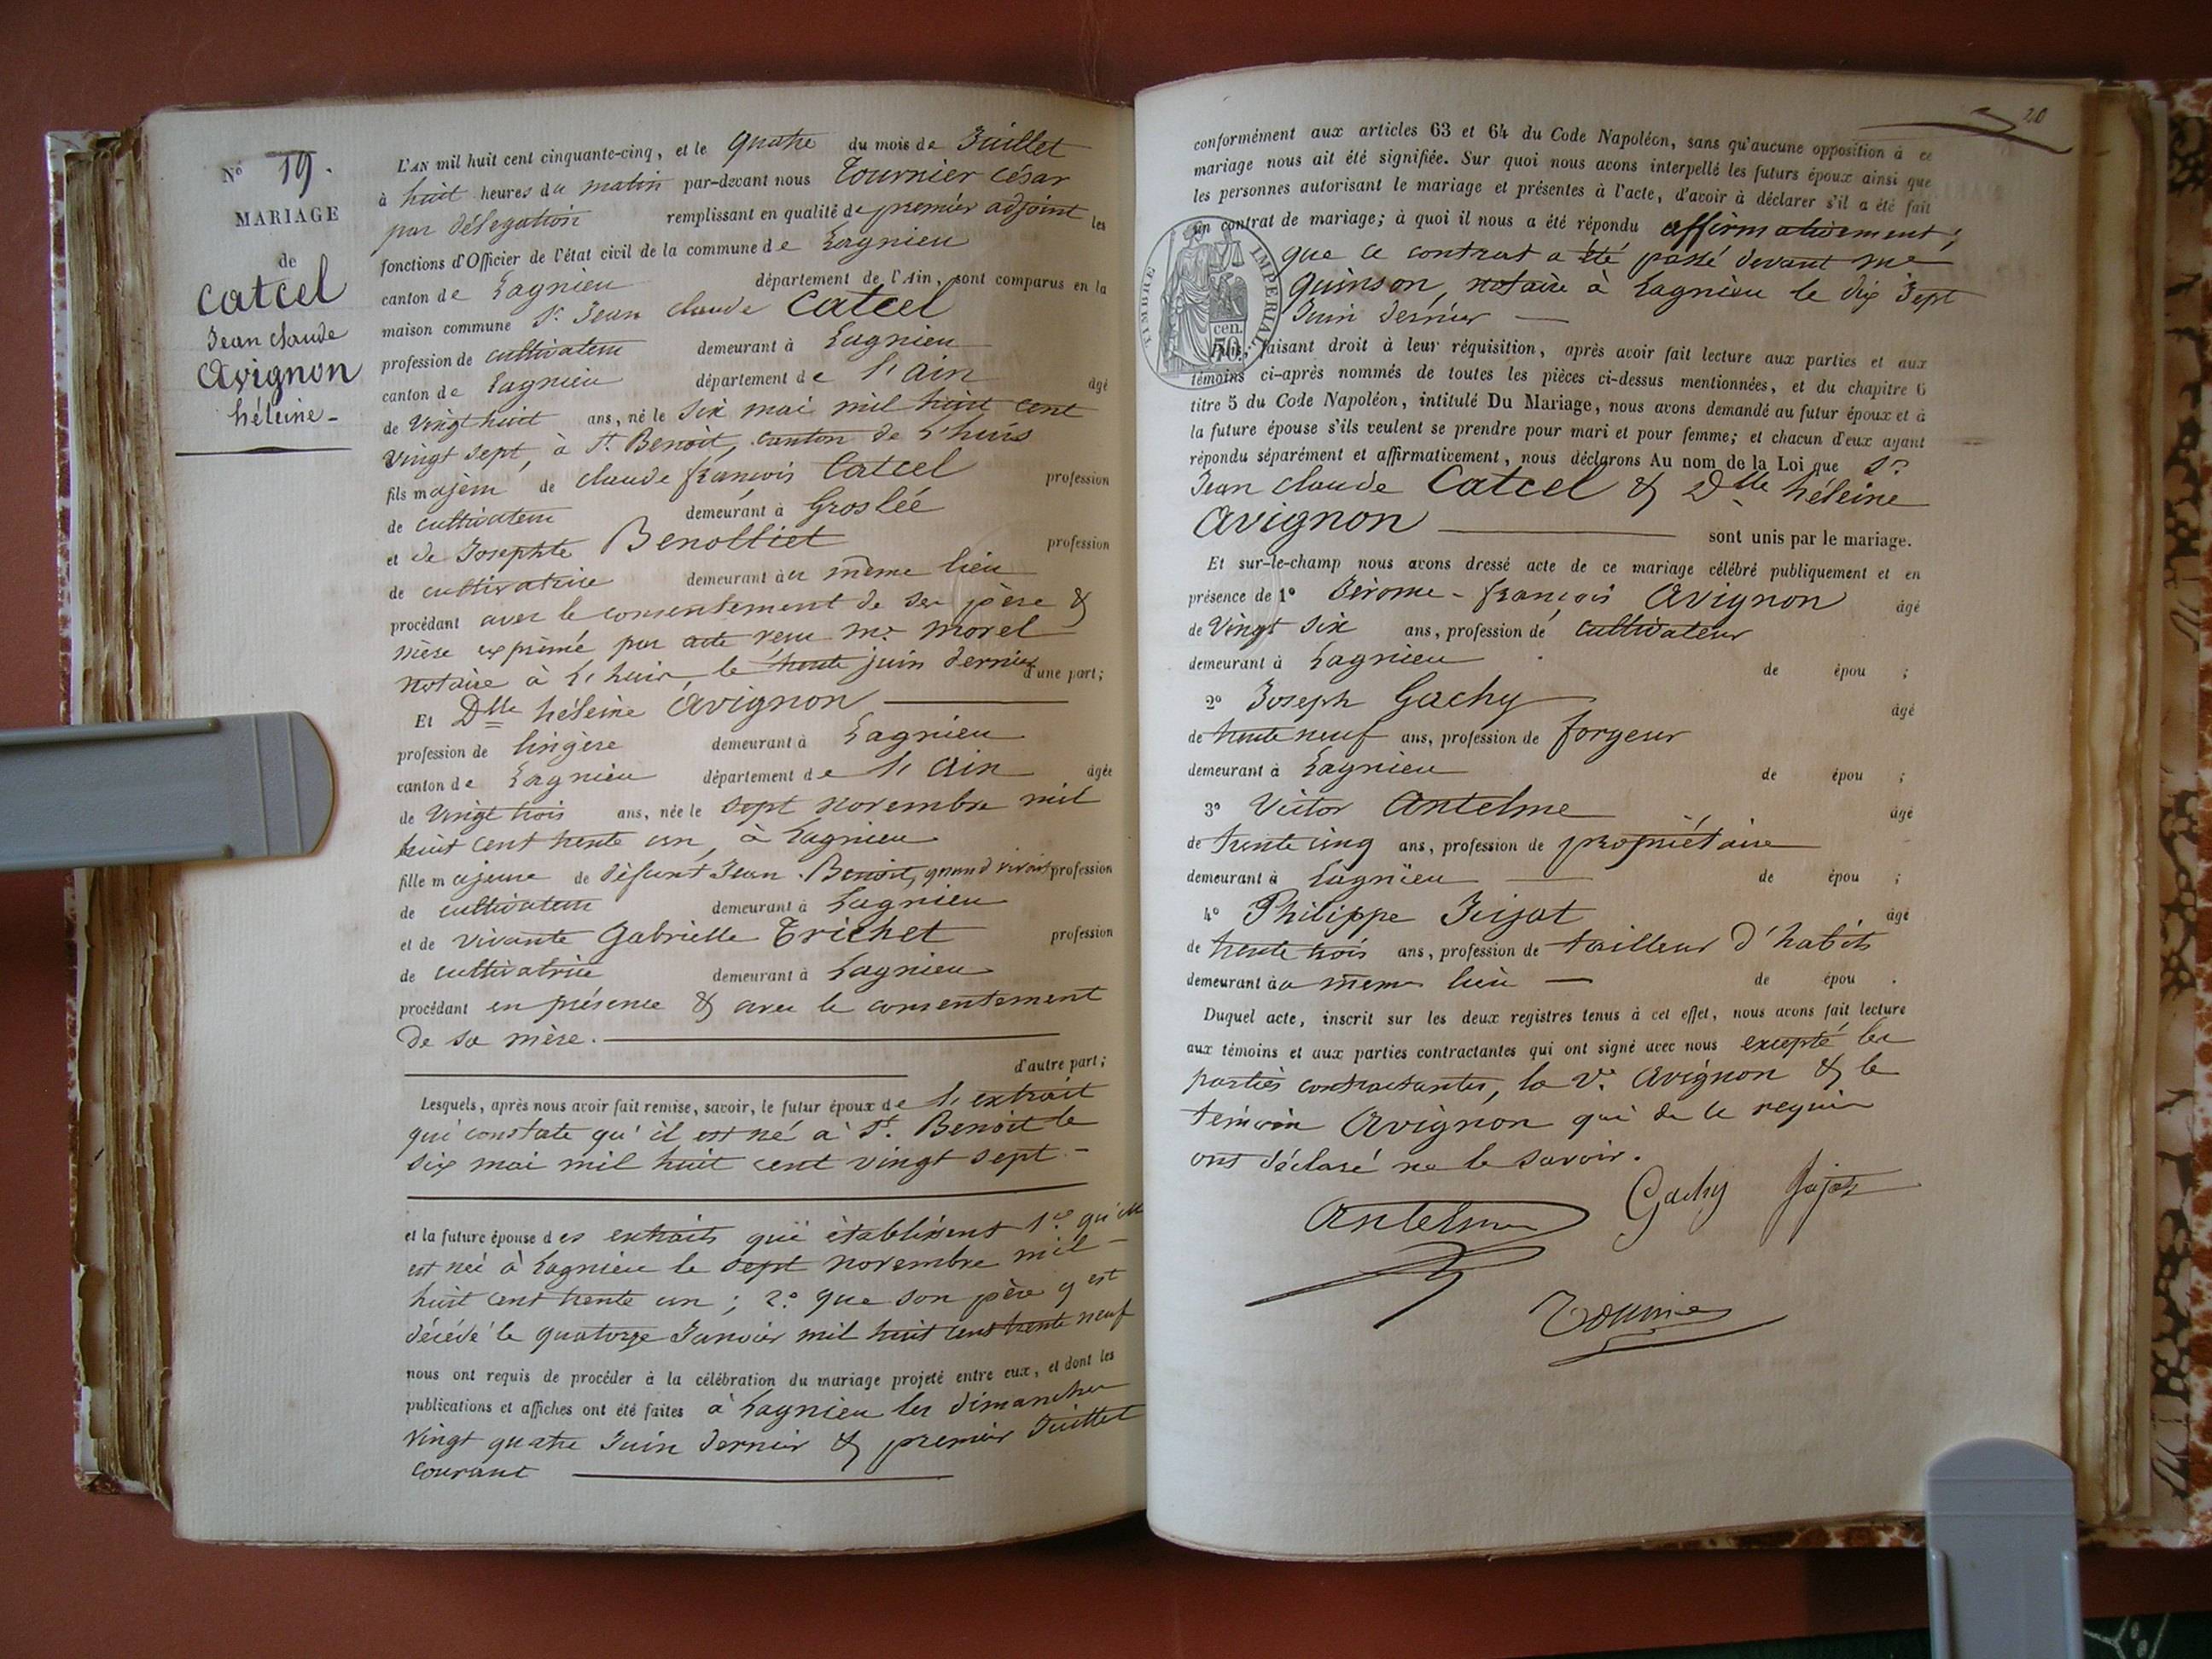 No 19.
MARIAGE
de
Catcel
Jean claude
Avignon
héleine -
L'AN mil huit cent cinquante-cinq, et le quatre du mois de Juillet
à huit heures du matin par-devant nous Tournier César
par délégation remplissant en qualité de premier adjoint les
fonctions d'Officier de l'état civil de la commune de Lagnieu
canton de Lagnieu département de l'Ain, sont comparus en la
maison commune Sr Jean claude Catcel
profession de cultivateur demeurant à Lagnieu
canton de Lagnieu département de l'Ain âgé
de Vingt huit ans, né le six mai mil huit cent
vingt sept, à St Benoit, canton de L'huis
fils majeur de claude françois Catcel profession
de cultivateur demeurant à Groslée
et de Josephte Benolliet profession
de cultivatrice demeurant au même lieu
procédant avec le consentement de ses père &
mère exprimé par acte reçu me morel
notaire à L'huis, le trente juin dernier d'une part;
Et Dlle héleine Avignon
profession de lingère demeurant à Lagnieu
canton de Lagnieu département de l'Ain âgée
de Vingt trois ans, née le sept novembre mil
huit cent trente un, à Lagnieu
fille majeure de défunt Jean Benoit, quand vivait profession
de cultivateur demeurant à Lagnieu
et de vivante Gabrielle Trichet profession
de cultivatrice demeurant à Lagnieu
procédant en présence & avec le consentement
de sa mère.
d'autre part;
Lesquels, après nous avoir fait remise, savoir, le futur époux de l'extrait
qui constate qu'il est né à St. Benoit le
six mai mil huit cent vingt sept -
et la future épouse des extraits qui établissent 1o qu'elle
est née à Lagnieu le sept novembre mil
huit cent trente un; 2o que son père y est
décédé le quatorze Janvier mil huit cent trente neuf
nous ont requis de procéder à la célébration du mariage projeté entre eux, et dont les
publications et affiches ont été faites à Lagnieu les dimanches
vingt quatre Juin dernier & premier Juillet
courant
20
conformément aux articles 63 et 64 du Code Napoléon, sans qu'aucune opposition à ce
mariage nous ait été signifiée. Sur quoi nous avons interpellé les futurs époux ainsi que
les personnes autorisant le mariage et présentes à l'acte, d'avoir à déclarer s'il a été fait
un contrat de mariage; à quoi il nous a été répondu affirmativement;
que ce contrat a été passé devant me
Quinson, notaire à Lagnieu le dix sept
Juin dernier
TIMBRE IMPERIAL
50 cen.
Puis, faisant droit à leur réquisition, après avoir fait lecture aux parties et aux
témoins ci-après nommés de toutes les pièces ci-dessus mentionnées, et du chapitre 6
titre 5 du Code Napoléon, intitulé Du Mariage, nous avons demandé au futur époux et à
la future épouse s'ils veulent se prendre pour mari et pour femme; et chacun d'eux ayant
répondu séparément et affirmativement, nous déclarons Au nom de la Loi que Sr
Jean claude Catcel & Dlle héleine
Avignon sont unis par le mariage.
Et sur-le-champ nous avons dressé acte de ce mariage célébré publiquement et en
présence de 1o Jérome-françois Avignon âgé
de Vingt six ans, profession de cultivateur
demeurant à Lagnieu de épou ;
2o Joseph Gachy âgé
de trente neuf ans, profession de forgeur
demeurant à Lagnieu de épou ;
3o Victor Antelme âgé
de trente cinq ans, profession de propriétaire
demeurant à Lagnieu de épou ;
4o Philippe Jujat âgé
de trente trois ans, profession de tailleur d'habits
demeurant au meme lieu de épou .
Duquel acte, inscrit sur les deux registres tenus à cet effet, nous avons fait lecture
aux témoins et aux parties contractantes qui ont signé avec nous excepté les
parties contractantes, la Ve. Avignon & le
témoin Avignon qui de ce requis
ont déclaré ne le savoir.
Antelme Gachy Jujat
Tournier